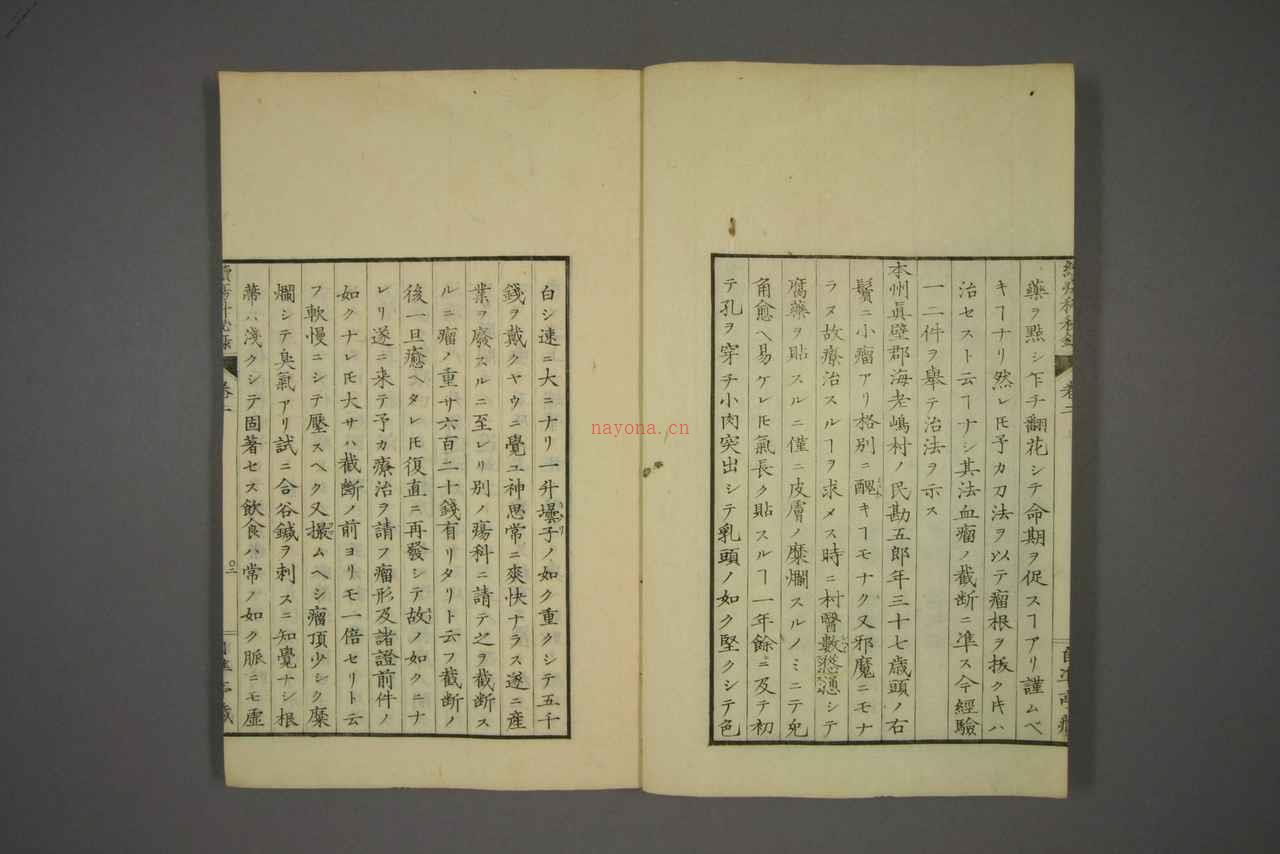 藥ヲ點シ乍チ翻花シテ命期ヲ促スヿアリ謹ムベ
キヿナリ然レ𪜈予カ刀法ヲ以テ瘤根ヲ拔クキハ
治セスト云ヿナシ其法血瘤ノ截断ニ準ス今經驗
一二件ヲ舉テ治法ヲ示ス
本州眞壁郡海老嶋村ノ民勘五郎年三十七歳頭ノ右
鬢ニ小瘤アリ格別ニ醜キヿモナク又邪魔ニモナ
ラヌ故療治スルヿヲ求メス時ニ村醫數慫慂シテ
腐藥ヲ貼スルニ僅ニ皮膚ノ糜爛スルノミニテ兎
角愈ヘ易ケレ𪜈氣長ク貼スルヿ一年餘ニ及テ初
テ孔ヲ穿チ小肉突出シテ乳頭ノ如ク堅クシテ色
白シ速ニ大ニナリ一升壜子ノ如ク重クシテ五千
錢ヲ戴クヤウニ覺ユ神思常ニ爽快ナラス遂ニ産
業ヲ廢スルニ至レリ別ノ瘍科ニ請テ之ヲ截断ス
ルニ瘤ノ重サ六百二十錢有リタリト云フ截断ノ
後一旦癒ヘタレ𪜈復直ニ再發シテ故ノ如クニナ
レリ遂ニ来テ予カ療治ヲ請フ瘤形及諸證前件ノ
如クナレ𪜈大サハ截断ノ前ヨリモ一倍セリト云
フ軟慢ニシテ壓スヘク又撮ムヘシ瘤頂少シク糜
爛シテ臭氣アリ試ニ合谷鍼ヲ刺スニ知覺ナシ根
蒂ハ淺クシテ固著セス飲食ハ常ノ如ク脈ニモ虛
卷二
nayona.cn